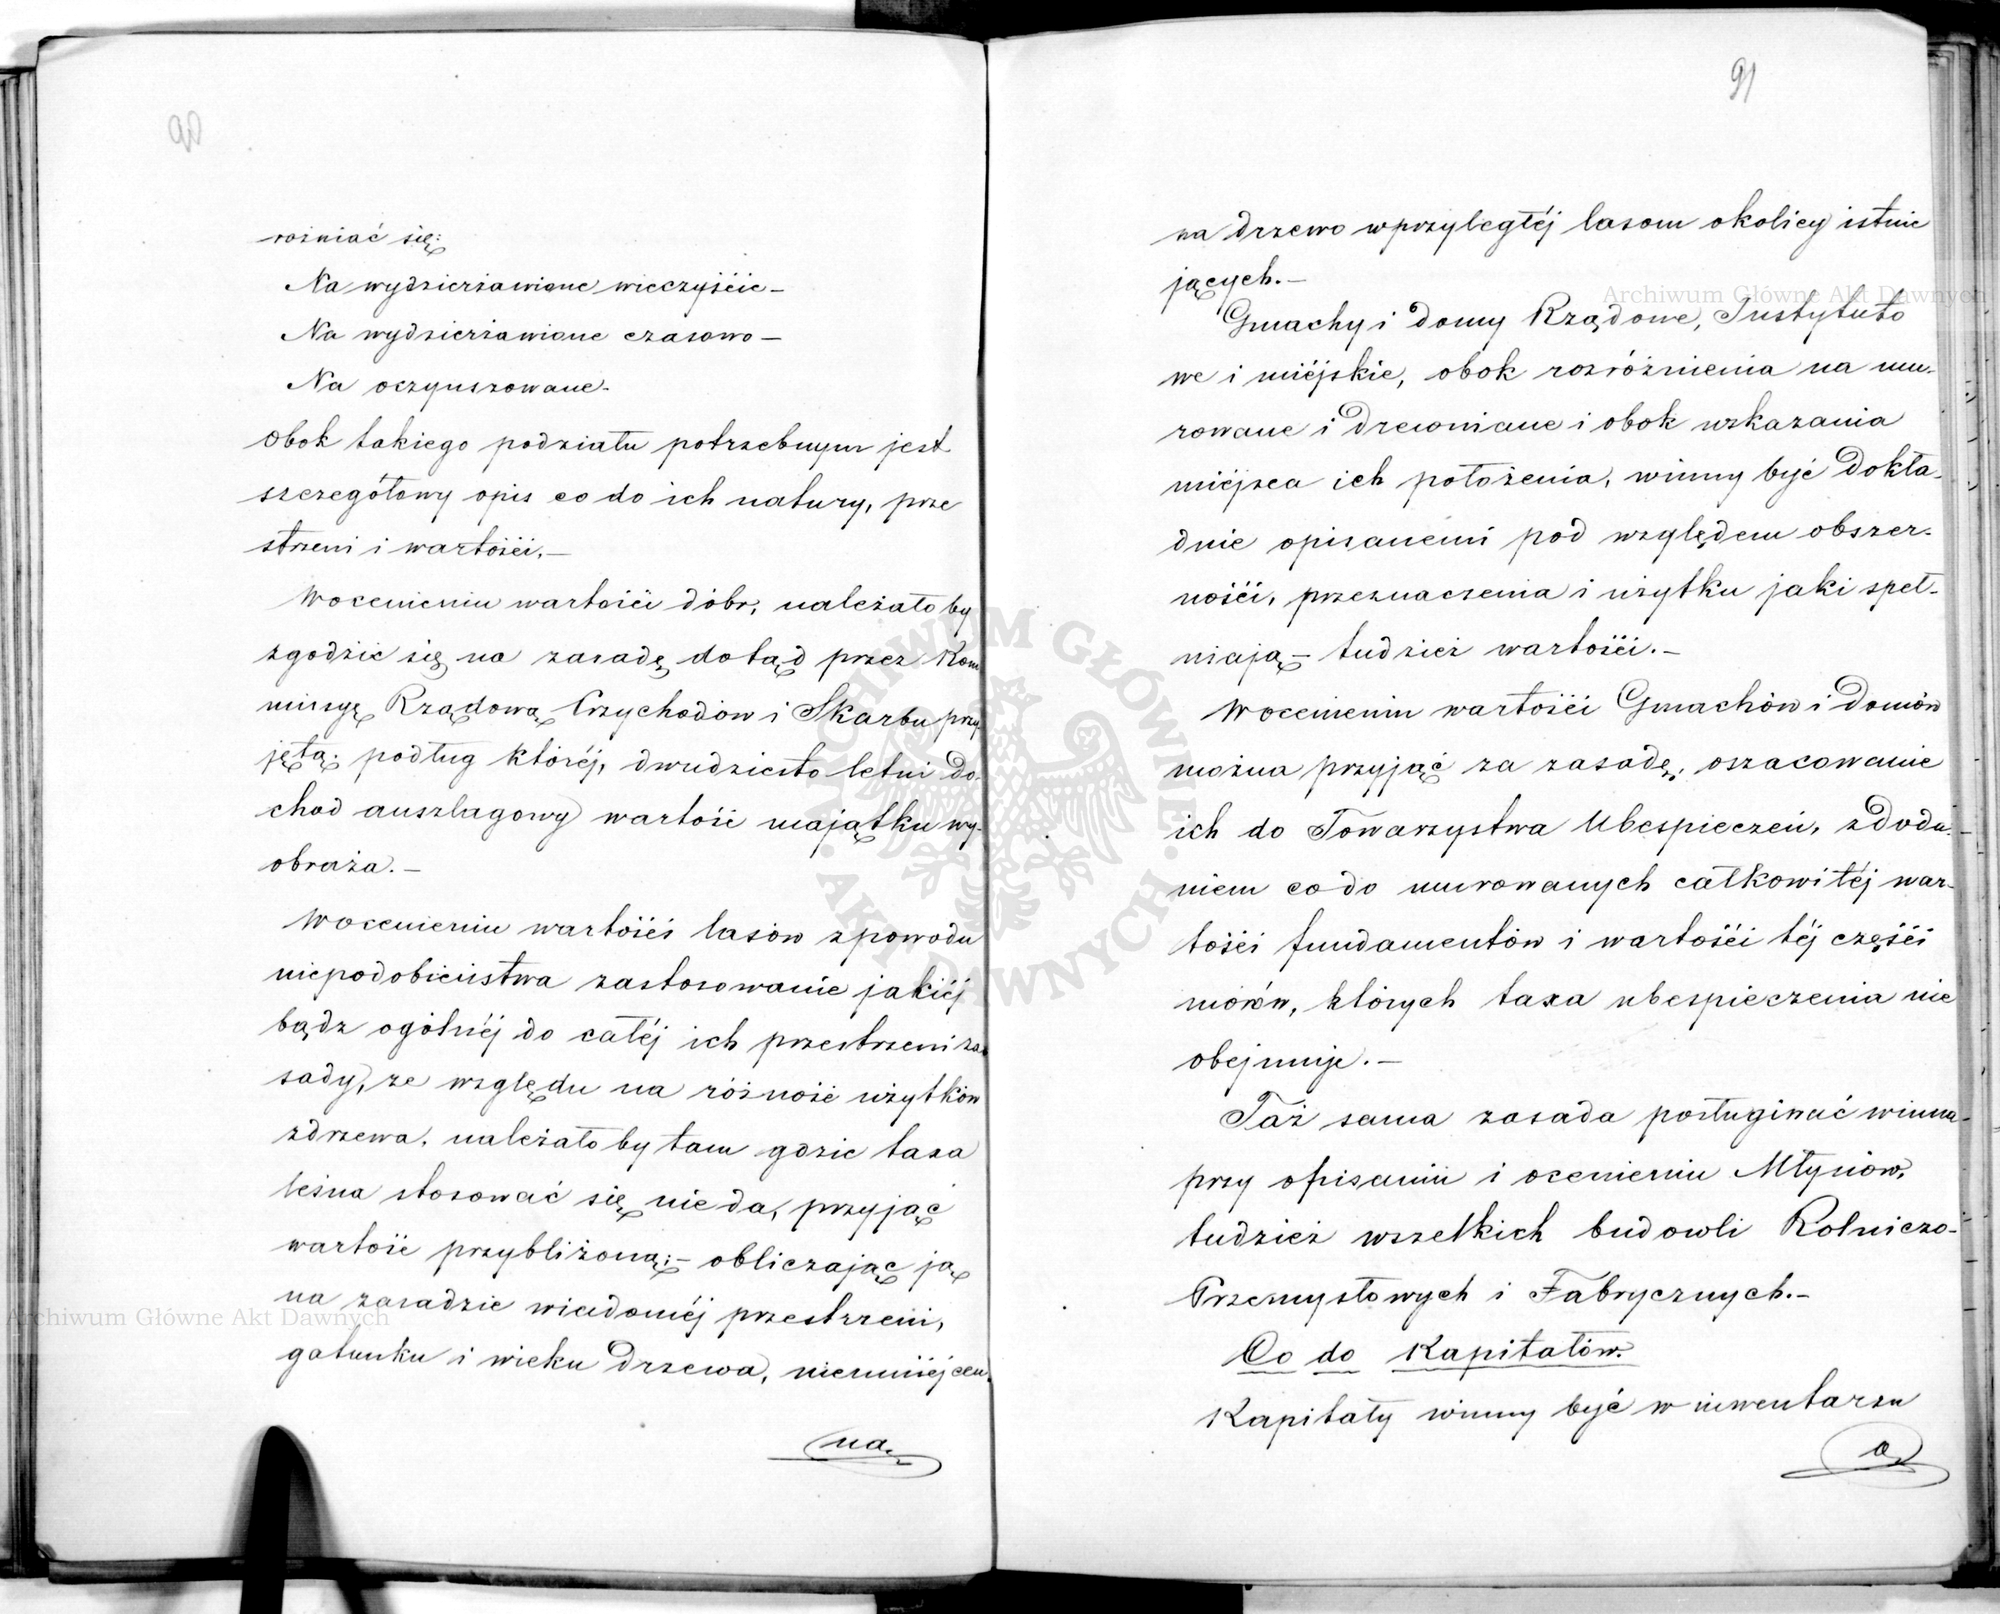 90
rożniać się:
Na wydzierżawione wieczyście –
Na wydzierżawione czasowo –
Na oczynszowane.
Obok takiego podziału potrzebnym jest
szczegółowy opis co do ich natury, prze
strzeni i wartości. –
W ocenieniu wartości dóbr, należało by
zgodzić się na zasadę dotąd przez Kom
missyę Rządową Przychodów i Skarbu przy
jętą; podług któréj, dwudziesto letni do-
chod auszlagowy wartość majątku wy-
obraża. –
W ocenieniu wartości lasów z powodu
niepodobieństwa zastosowanie jakiéj
bądz ogólnéj do całéj ich przestrzeni za
sady, ze względu na różność użytków
z drzewa, należało by tam gdzie taxa
leśna stosować się nie da, przyjąć
wartość przybliżoną; – obliczając ją
na zasadzie wiadoméj przestrzeni,
gatunku i wieku drzewa, niemniéj cen
na
91
na drzewo w przyległéj lasom okolicy istnie
jących. –
Gmachy i domy Rządowe, Instytuto
we i miéjskie, obok rozróżnienia na mu-
rowane i drewniane i obok wskazania
miéjsca ich położenia, winny być dokła-
dnie opisanemi pod względem obszer-
ności, przeznaczenia i użytku jaki speł-
niają – tudzież wartości. –
W ocenieniu wartości Gmachów i domów
można przyjąć za zasadę, oszacowanie
ich do Towarzystwa Ubespieczeń, z doda-
niem co do murowanych całkowitéj war-
tości fundamentów i wartości téj części
murów, których taxa ubespieczenia nie
obejmuje. –
Taż sama zasada posługiwać winna
przy opisaniu i ocenieniu Młynów,
tudzież wszelkich budowli Rolniczo-
Przemysłowych i Fabrycznych. –
Co do Kapitałów.
Kapitały winny być w inwentarzu
a
Archiwum Główne Akt Dawnych
Archiwum Główne Akt Dawnych
ARCHIWUM GŁÓWNE AKT DAWNYCH